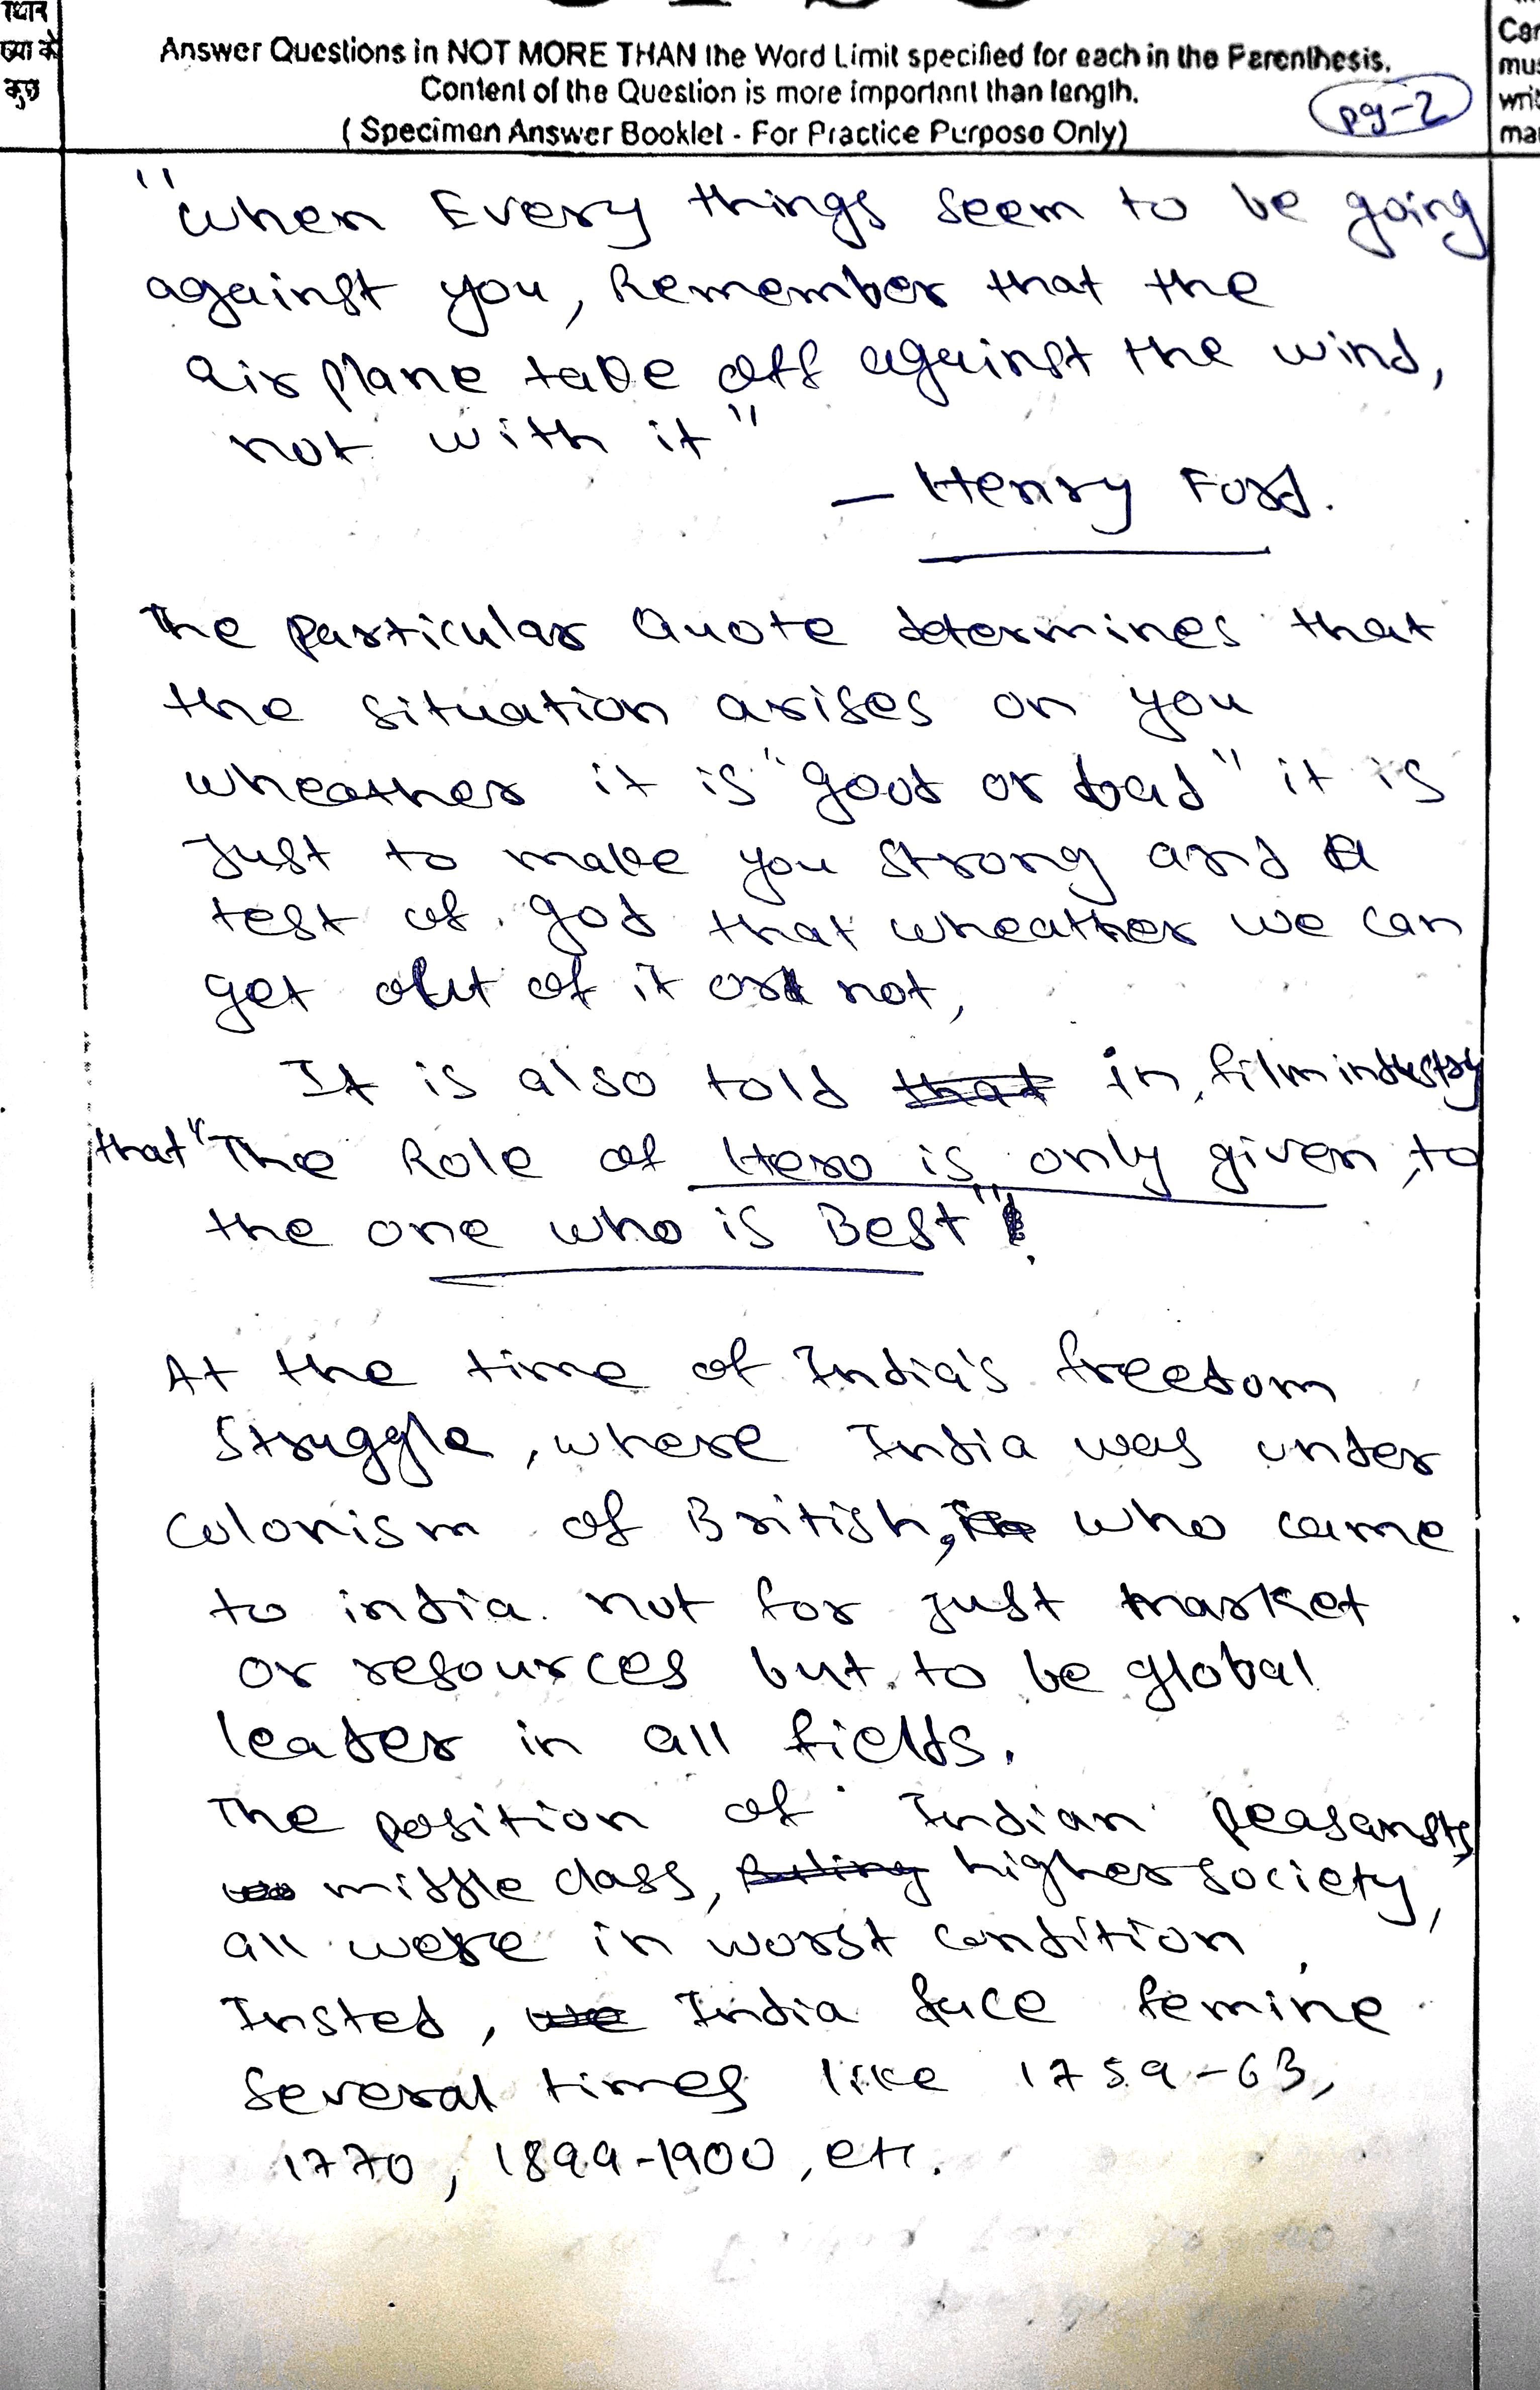 स्थान
कुछ
Answer Questions in NOT MORE THAN the Word Limit specified for each in the Parenthesis.
Content of the Question is more important than length.
( Specimen Answer Booklet - For Practice Purpose Only)
pg-2
Can
mus
writ
ma
"When Every things seem to be going
against you, Remember that the
air plane take off against the wind,
not with it"
— Henry Ford.
The particular Quote determines that
the situation arises on you
wheather it is "good or bad" it is
Just to make you strong and a
test of god that wheather we can
get out of it or not,
It is also told that in film industry
that "The Role of Hero is only given to
the one who is Best".
At the time of India's freedom
struggle, where India was under
colonism of British, who came
to india not for just market
or resources but to be global
leader in all fields.
The position of Indian peasants,
middle class, Ruling higher society,
all were in worst condition,
Insted, we India face femine
several times like 1759-63,
1770, 1899-1900, etc.